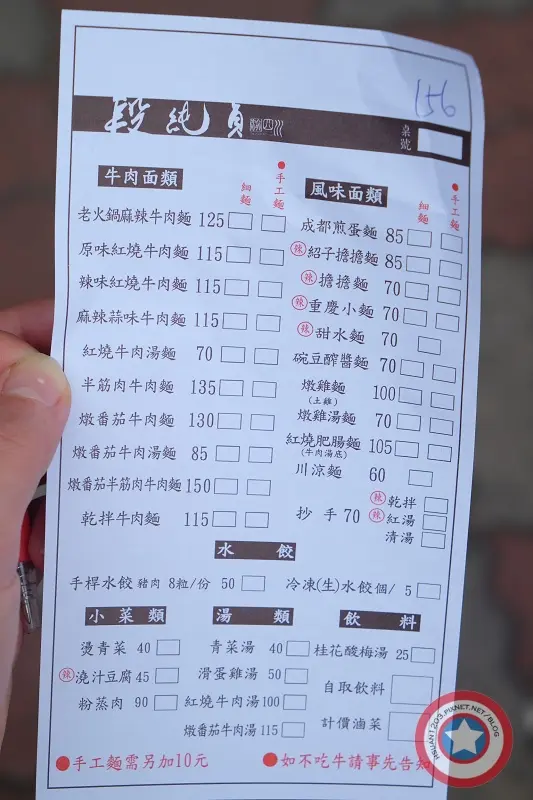 156
段純貞
四川
桌號
牛肉面類
細麵 ●手工麵
老火鍋麻辣牛肉麵 125
原味紅燒牛肉麵 115
辣味紅燒牛肉麵 115
麻辣蒜味牛肉麵 115
紅燒牛肉湯麵 70
半筋肉牛肉麵 135
燉番茄牛肉麵 130
燉番茄牛肉湯麵 85
燉番茄半筋肉牛肉麵 150
乾拌牛肉麵 115
風味面類
細麵 ●手工麵
成都煎蛋麵 85
辣 紹子擔擔麵 85
辣 擔擔麵 70
辣 重慶小麵 70
辣 甜水麵 70
碗豆酢醬麵 70
燉雞麵 100
(土雞)
燉雞湯麵 70
紅燒肥腸麵 105
(牛肉湯底)
川涼麵 60
抄手 70
辣 乾拌
辣 紅湯
清湯
水餃
手桿水餃 豬肉 8粒/份 50
冷凍(生)水餃 個/ 5
小菜類
燙青菜 40
辣 澆汁豆腐 45
粉蒸肉 90
湯類
青菜湯 40
滑蛋雞湯 50
紅燒牛肉湯 100
燉番茄牛肉湯 115
飲料
桂花酸梅湯 25
自取飲料
計價滷菜
●手工麵需另加10元
●如不吃牛請事先告知
HSUAN1203.PIXNET.NET/BLOG